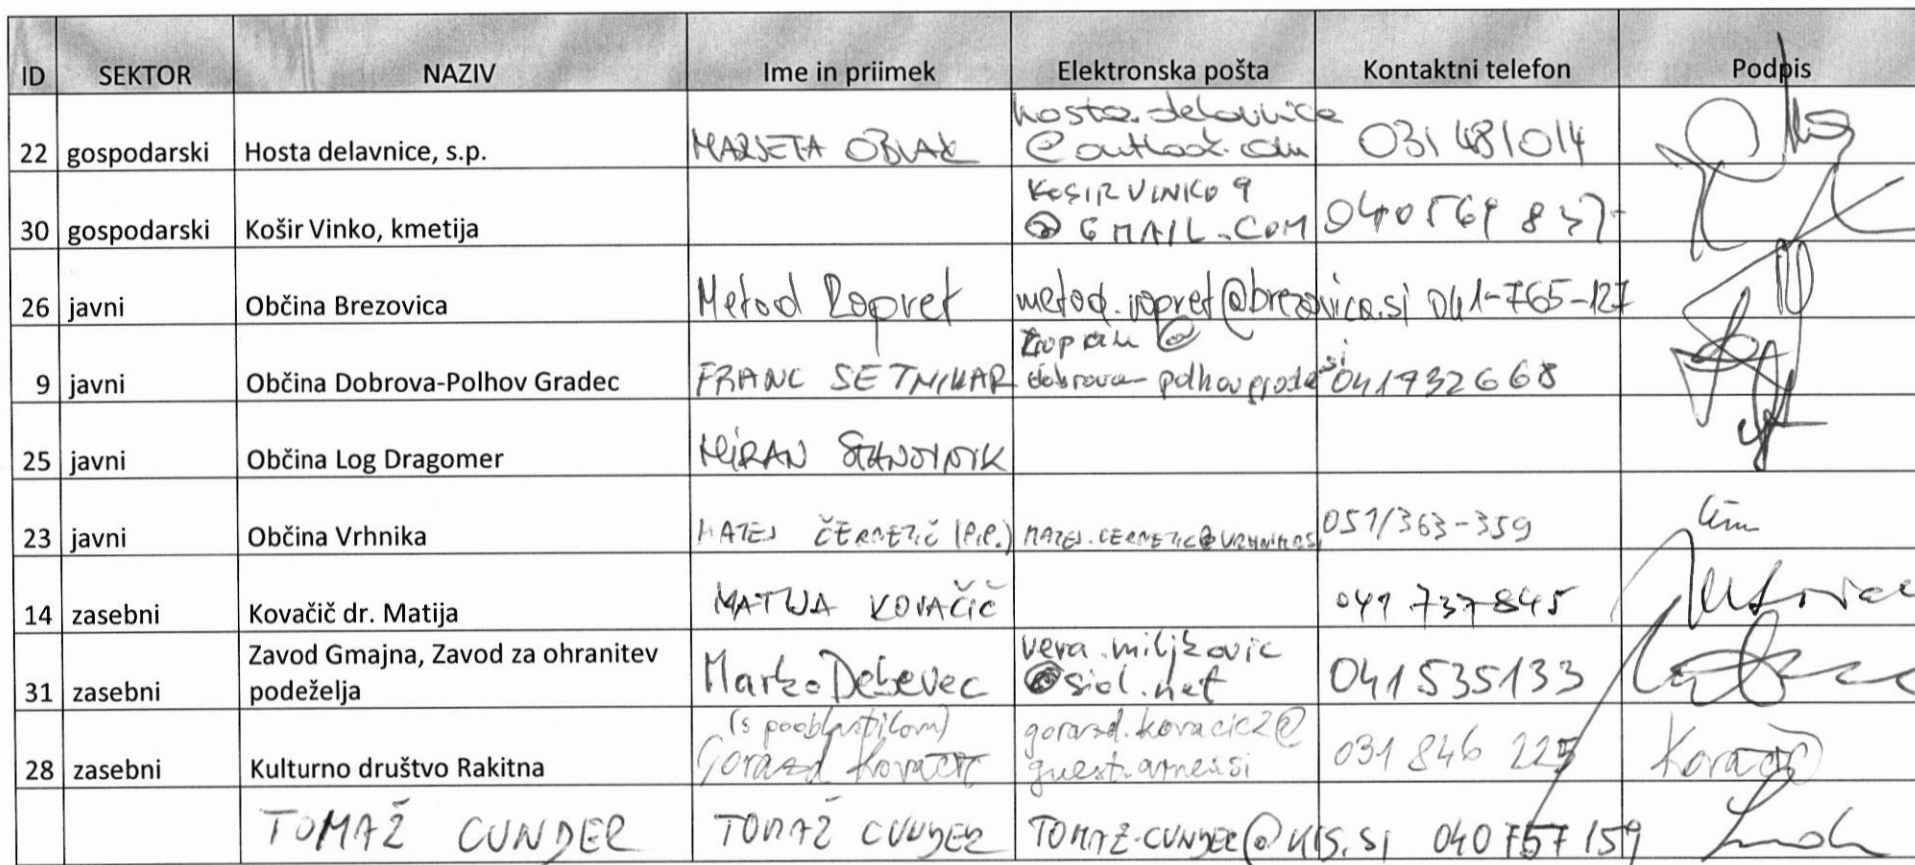 ID SEKTOR NAZIV Ime in priimek Elektronska pošta Kontaktni telefon Podpis
22 gospodarski Hosta delavnice, s.p. MARJETA OBLAK hosta.delavnice 031 481014
@outlook.com
30 gospodarski Košir Vinko, kmetija KOSIRVINKO9
@GMAIL.COM 040 569 837
26 javni Občina Brezovica Metod Ropret metod.ropret@brezovica.si 041-765-127
9 javni Občina Dobrova-Polhov Gradec FRANC SETNIKAR 041932668
25 javni Občina Log Dragomer MIRAN STANOVNIK
23 javni Občina Vrhnika MATEJ ČERNETIČ (P.P.) MATEJ.CERNETIC@VRHNIKA.SI 051/363-359
14 zasebni Kovačič dr. Matija MATIJA KOVAČIČ 041 737845
Zavod Gmajna, Zavod za ohranitev vera.miljkovic
31 zasebni podeželja Marko Debevec @siol.net 041535133
(s pooblastilom) gorazd.kovacic2@
28 zasebni Kulturno društvo Rakitna Gorazd Kovačič guest.arnes.si 031 846 225 Kovačič
TOMAŽ CUNDER TOMAŽ CUNDER TOMAZ.CUNDER@KIS.SI 040 757 159